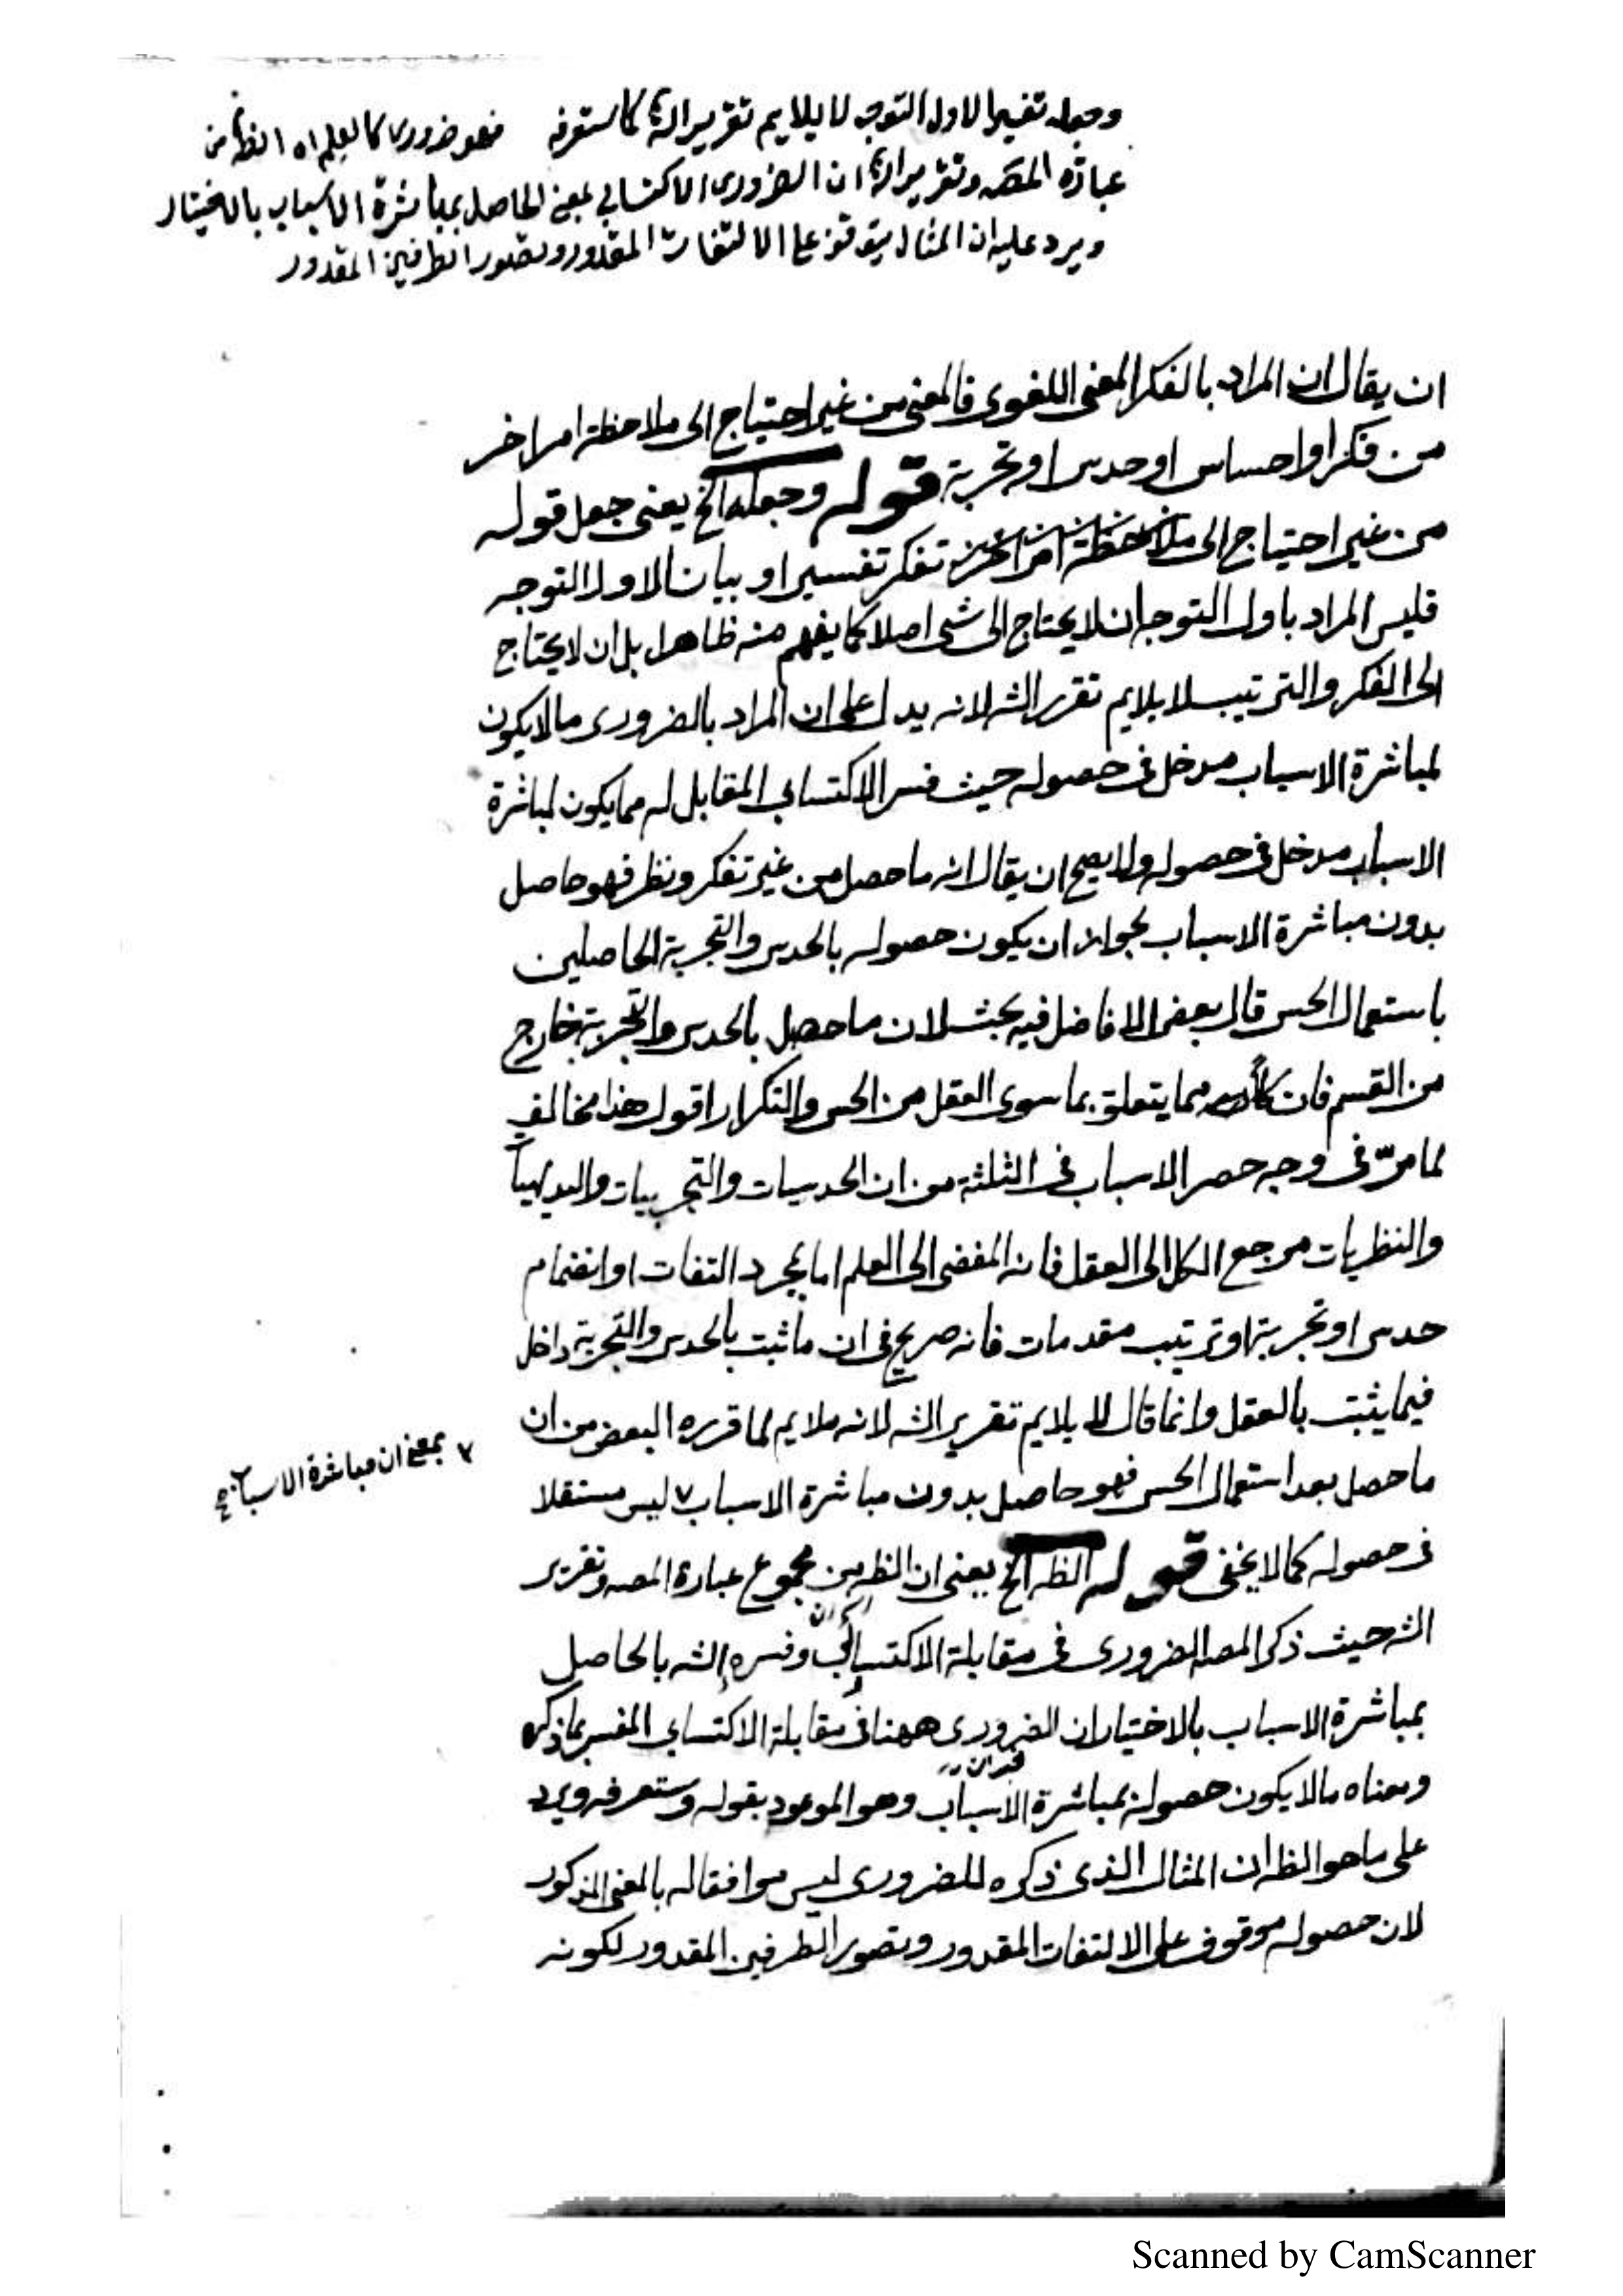 وجعله تفسيرا لاول التوجه لا يلايم تقرير الش كما ستعرفه فهو ضروري كالعلم اه الظ من
عبارة المصه وتقرير الش ان الضروري الاكتسابي بمعنى الحاصل بمباشرة الاسباب بالاختيار
ويرد عليه ان المثال يتوقف على الالتفات المقدور وتصور الطرفين المقدور
ان يقال ان المراد بالفكر المعنى اللغوى فالمعنى من غير احتياج الى ملاحظة امر اخر
من فكر او احساس او حدس او تجربة قوله وجعله الخ يعنى جعل قوله
من غير احتياج الى تفكر تفسيرا و بيانا لاول التوجه
فليس المراد باول التوجه ان لا يحتاج الى شى اصلا كما يفهم منه ظاهرا بل ان لا يحتاج
الى الفكر والترتيب لا يلايم تقرير الشه لانه يدل على ان المراد بالضرورى مالا يكون
لمباشرة الاسباب مدخل فى حصوله حيث فسر الاكتسابى المقابل له مما يكون لمباشرة
الاسباب مدخل فى حصوله ولا يصح ان يقال انه ما حصل من غير تفكر ونظر فهو حاصل
بدون مباشرة الاسباب لجواز ان يكون حصوله بالحدس والتجربة الحاصلين
باستعمال الحس قال بعض الافاضل فيه بحث لان ما حصل بالحدس والتجربة خارج
من القسم فان مما يتعلق بما سوى العقل من الحس والتكرار اقول هذا مخالف
لما مرّ فى وجه حصر الاسباب فى الثلثة من ان الحدسيات والتجربيات والبديهيات
والنظريات مرجع الكل الى العقل فانه المفضى الى العلم اما بمجرد التفات او انضمام
حدس او تجربة او ترتيب مقدمات فانه صريح فى ان ما ثبت بالحدس والتجربة داخل
فيما يثبت بالعقل وانما قال لا يلايم تقرير الشه لانه ملايم لما قرره البعض من ان
ما حصل بعد استعمال الحس فهو حاصل بدون مباشرة الاسباب ٧ ليس مستقلا
٧ بمعنى ان مباشرة الاسباب
فى حصوله كما لا يخفى قوله الظه الخ يعنى ان الظه من مجموع عبارة المصه وتقرير
الشه حيث ذكر المصه الضرورى فى مقابلة الاكتسابى وفسره الشه بالحاصل
بمباشرة الاسباب بالاختيار ان الضرورى ههنا فى مقابلة الاكتسابى المفسر بما ذكره
ومعناه مالا يكون حصوله بمباشرة الاسباب وهو الموعود بقوله وستعرفه ويرد
على ما هو الظه ان المثال الذى ذكره للضرورى ليس موافقا له بالمعنى المذكور
لان حصوله موقوف على الالتفات المقدور وتصور الطرفين المقدور لكونه
Scanned by CamScanner